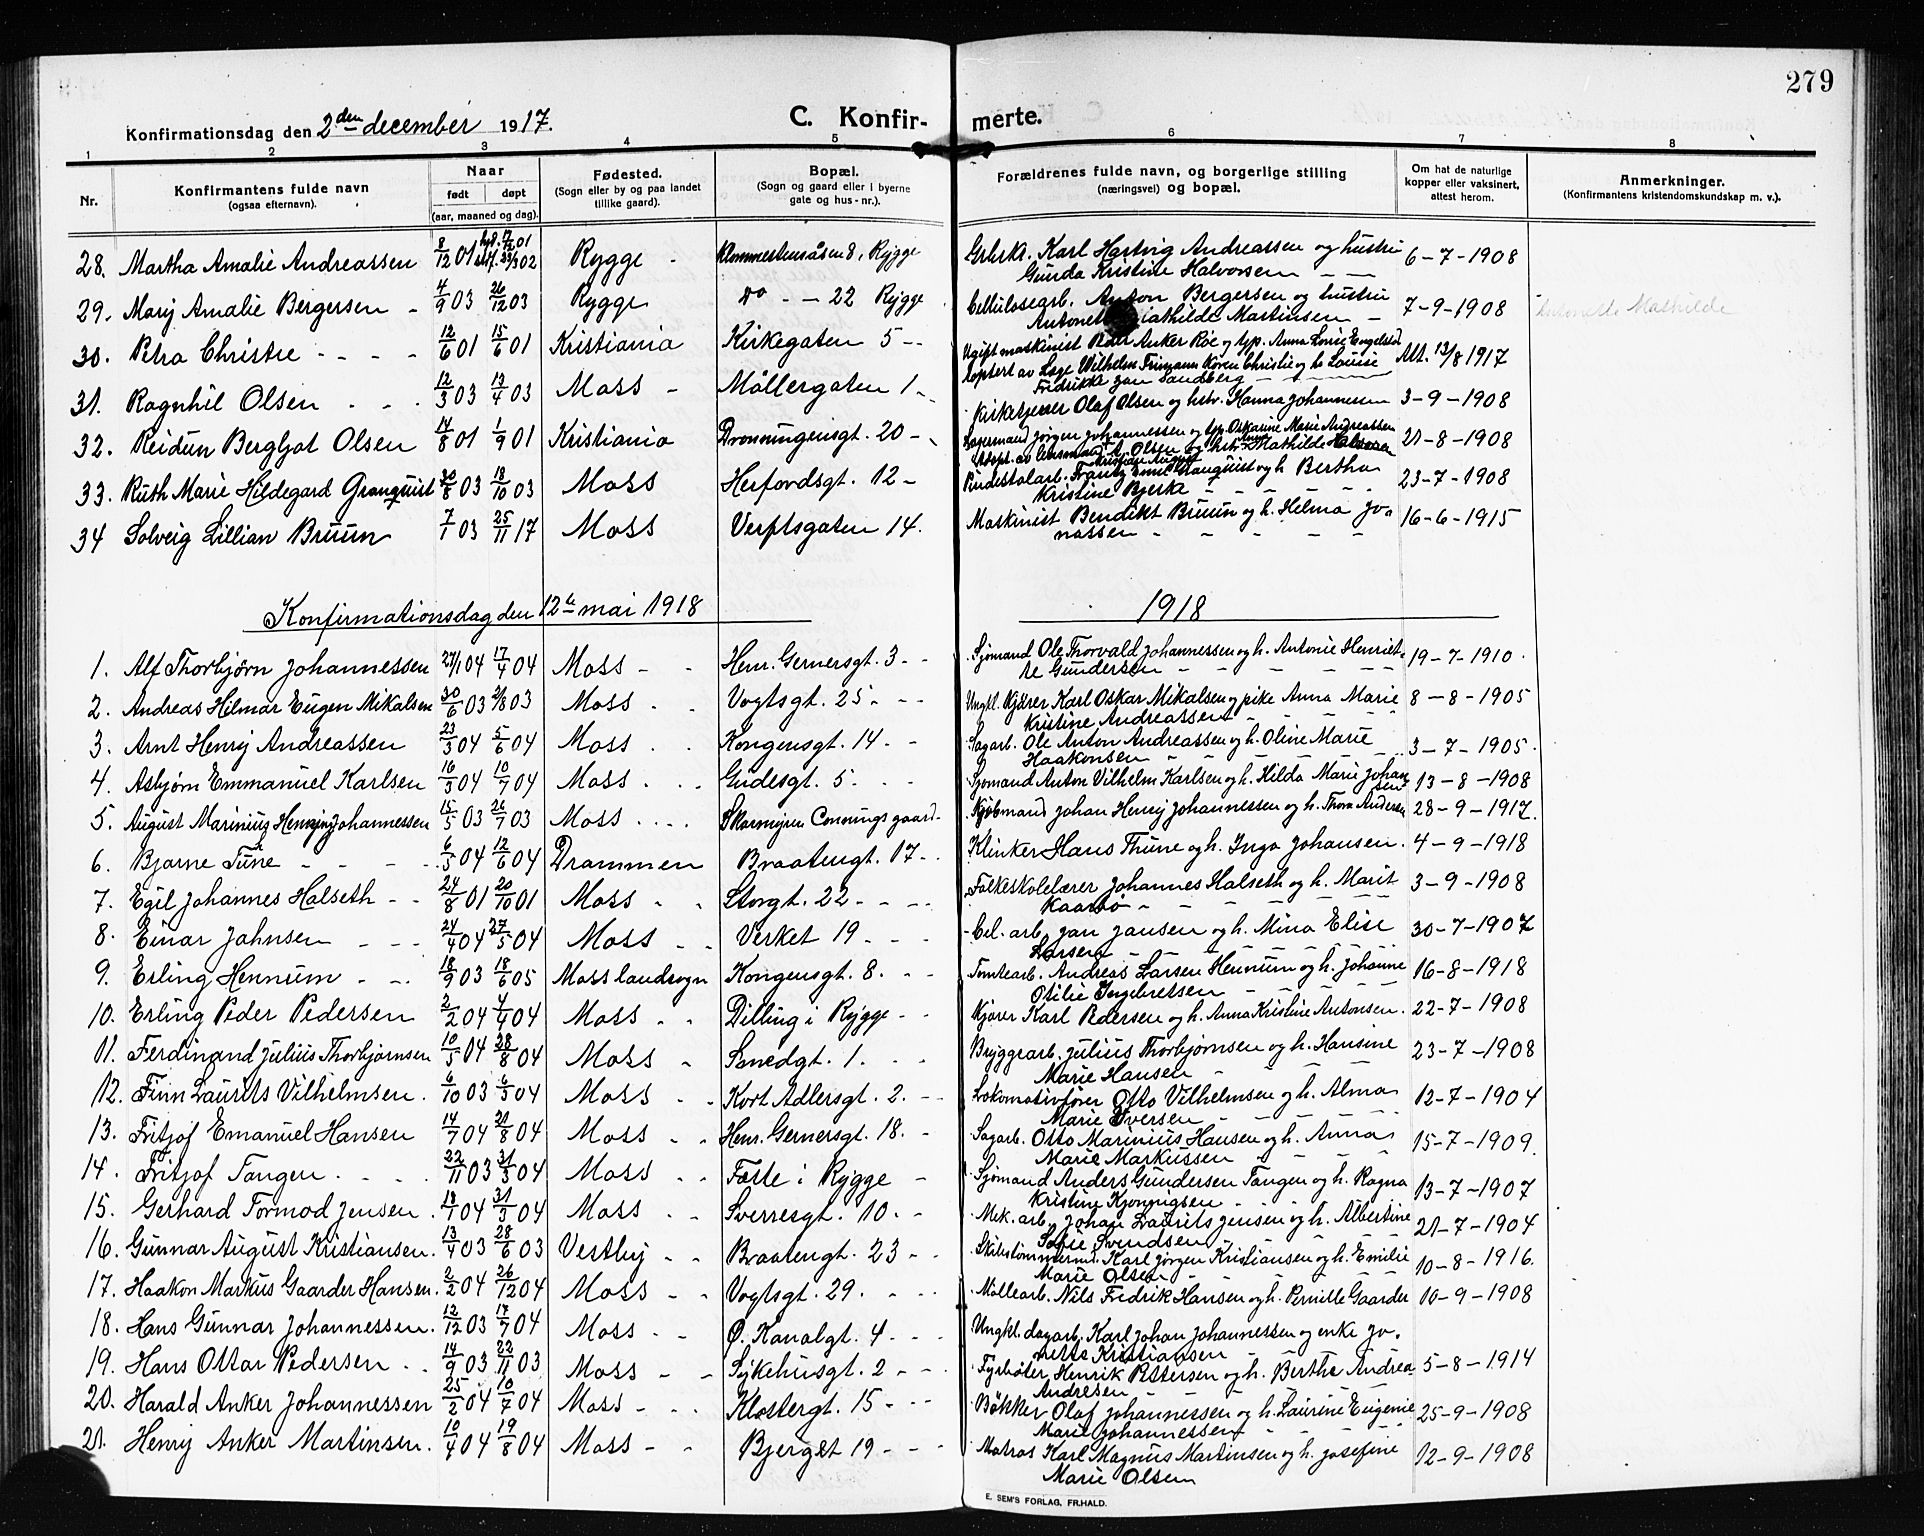 279
Konfirmationsdag den 2den december 1917.
C. Konfir-merte.
1 2 3 4 5 6 7 8
Nr. Konfirmantens fulde navn (ogsaa efternavn). Naar født døpt (aar, maaned og dag). Fødested. (Sogn eller by og paa landet tillike gaard). Bopæl. (Sogn og gaard eller i byerne gate og hus-nr.). Forældrenes fulde navn, og borgerlige stilling (næringsvei) og bopæl. Om hat de naturlige kopper eller vaksinert, attest herom. Anmerkninger. (Konfirmantens kristendomskundskap m. v.).
28. Martha Amalie Andreassen 8/12 01 Rygge - Rygge Karl Hartvig Andreassen og hustru 6-7-1908
Gunda Kristine Halvorsen - -
29. Mary Amalie Bergersen - 4/9 03 26/12 03 Rygge Do - - 22 Rygge Cellulosearb. Anton Bergersen og hustru 7-9-1908 Antonette Mathilde
Mathilde Martinsen -
30. Petra Christie - - - - 12/6 01 15/6 01 Kristiania Kirkegaten 5 - - Ugift maskinist Anker Roe og Anna Lovise Engelstad Att. 13/8 1917
Adoptert av Lage Wilhelm Frimann Koren Christie og h. Louise
Fredrikke Sandberg - -
31. Ragnhil Olsen - - - 12/3 03 13/4 03 Moss - Møllergaten 1 - - Kirketjener Olaf Olsen og hstr. Hanna Johannessen 3-9-1908
32. Reidun Bergljot Olsen 14/8 01 1/9 01 Kristiania Dronningensgt. 20 - - Lagermand Jørgen Johannessen og Oskarine Marie Andreassen 21-8-1908
Adopt. av A. Olsen og hstr. Mathilde
33. Ruth Marie Hildegard Granquist 30/8 03 18/10 03 Moss Herfordsgt. 12 - Pindestolarb. Frantz Emil Granquist og h. Bertha 23-7-1908
Kristine Bjerke - - - -
34 Solveig Lillian Bruun 7/7 03 25/11 17 Moss Verftsgaten 14. Maskinist Bendikt Bruun og h. Helma Jo- 16-6-1915
nassen - - - - -
Konfirmationsdag den 12te mai 1918 1918
1. Alf Thorbjørn Johannessen 27/1 04 17/4 04 Moss - - Henr. Gernersgt. 3 - - Sjømand Ole Thorvald Johannessen og h. Antonie Henriet- 19-7-1910.
te Gundersen - - - -
2. Andreas Hilmar Eugen Mikalsen 30/6 03 2/8 03 Moss - - Vogtsgt. 25 - - - Ungkl. kjører Karl Oskar Mikalsen og pike Anna Marie 8-8-1905
Kristine Andreassen - - - -
3. Arnt Henry Andreassen 23/3 04 5/6 04 Moss - - Kongensgt. 14 - - Sagarb. Ole Anton Andreassen og h. Oline Marie 3-7-1905.
Haakonsen - - - -
4. Asbjørn Emmanuel Karlsen 16/3 04 10/7 04 Moss - - - Gudesgt. 5 - - - Sjømand Anton Vilhelm Karlsen og h. Hilda Marie Johan 13-8-1908
sen
5. August Marinius Henning Johannessen 15/5 03 26/7 03 Moss - - - - Skarmyren Connings gaard- Kjøbmand Johan Henry Johannessen og h. Thora Andersen 28-9-1917.
6. Bjarne Tune - - - - 6/3 04 12/6 04 Drammen Braatengt. 17 - - Klinker Hans Thune og h. Inga Johansen. 4-9-1918
7. Egil Johannes Halseth - - 24/8 01 20/10 01 Moss - - Storgt. 22 - - - - Folkeskolelærer Johannes Halseth og h. Marit 3-9-1908
Kaarbø - - - -
8. Einar Johnsen - - - 24/4 04 27/5 04 Moss - - Verket 19 - - - Cel. arb. Jan Jansen og h. Mina Elise 30-7-1907
Larsen - - -
9. Erling Hennum - - - 18/9 03 18/6 05 Moss landsogn Kongensgt. 8. - - Tomtearb. Andreas Larsen Hennum og h. Johanne 16-8-1918
Otilie Ingebretsen - - -
10. Erling Peder Pedersen 2/2 04 4/4 04 Moss - - Dilling i Rygge - - Kjører Karl Pedersen og h. Anna Kristine Antonsen. 22-7-1908
11. Ferdinand Julius Thorbjørnsen 10/5 04 28/8 04 Moss - Smedgt. 1. - - Bryggearb. Julius Thorbjørnsen og h. Hansine 23-7-1908
Marie Hansen - - -
12. Finn Laurits Vilhelmsen. 6/10 03 6/3 04 Moss - - Kort Adlersgt. 2. - - Lokomotivfører Otto Vilhelmsen og h. Alma 12-7-1904
Marie Iversen - - -
13. Fritjof Emanuel Hansen 14/7 04 21/8 04 Moss - - Henr. Gernersgt. 18. - Sagarb. Otto Marinius Hansen og h. Anna 15-7-1909.
Marie Markussen - - - -
14. Fritjof Tangen - - - - 22/11 03 31/3 04 Moss - - Feste i Rygge - Sjømand Anders Gundersen Tangen og h. Ragna 13-7-1907
Kristine - - -
15. Gerhard Tormod Jensen. 18/1 04 31/3 04 Moss - - Sverresgt. 10. - - Mek. arb. Johan Laurits Jensen og h. Albertine 21-7-1904
Sofie Svendsen - - -
16. Gunnar August Kristiansen. 13/4 03 28/6 03 Vestby - - Braatengt. 23 - - Skibstømmermd. Karl Jørgen Kristiansen og h. Emilie 10-8-1916.
Marie Olsen - - -
17. Haakon Markus Gaarder Hansen. 2/2 04 26/12 04 Moss - - Vogtsgt. 29. - - - Møllearb. Nils Fredrik Hansen og h. Pernille Gaarder 10-9-1908
18. Hans Gunnar Johannessen. 12/12 03 17/7 04 Moss - - Ø. Kanalgt. 4 - - - Ungkl. dagarb. Karl Johan Johannessen og enke Jo-
nette Kristiansen - -
19. Hans Ottar Pedersen - - 14/9 03 22/11 03 Moss - - Sykehusgt. 2 - - - Fyrbøter Henrik Pettersen og h. Berthe Andrea 5-8-1914
Andresen - - - -
20. Harald Anker Johannessen 25/2 04 10/7 04 Moss - - - Klostergt. 15 - - - Bøkker Olaf Johannessen og h. Laurine Eugenie 25-9-1908
Marie Johannessen - - -
21. Henry Anker Martinsen. 10/4 04 19/8 04 Moss - - Bjerget 19 - - - Matros Karl Magnus Martinsen og h. Josefine 12-9-1908
Marie Olsen
E. SEM'S FORLAG, FR.HALD.